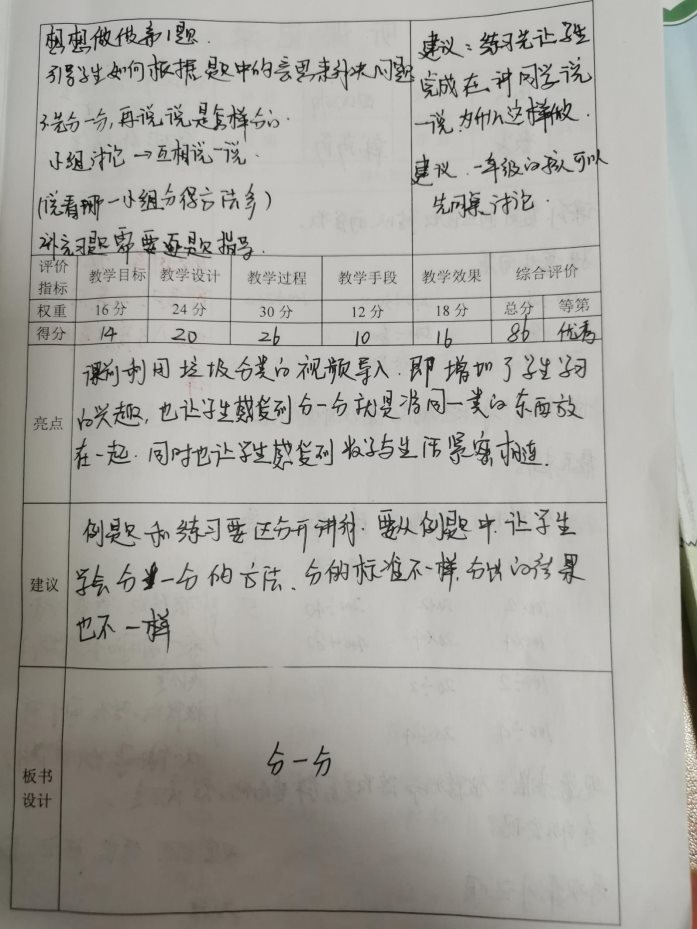 想想做做第1题.
引导学生如何根据题中的意思来解决问题
先分一分,再说说是怎样分的.
小组讨论→互相说一说.
(说看哪一小组分得方法多)
补充习题需要逐题指导.
建议:练习先让学生
完成在讲同学说
一说为什么这样做.
建议.一年级的孩子可以
先同桌讨论.
评价指标 教学目标 教学设计 教学过程 教学手段 教学效果 综合评价
权重 16分 24分 30分 12分 18分 总分 等第
得分 14 20 26 10 16 86 优秀
亮点
课前利用垃圾分类的视频导入.即增加了学生学习
的兴趣,也让学生感受到分一分就是将同一类的东西放
在一起.同时也让学生感受到数学与生活紧密相连.
建议
例题和练习要区分开讲解.要从例题中让学生
学会分一分的方法、分的标准不一样,分出的结果
也不一样
板书设计
分一分